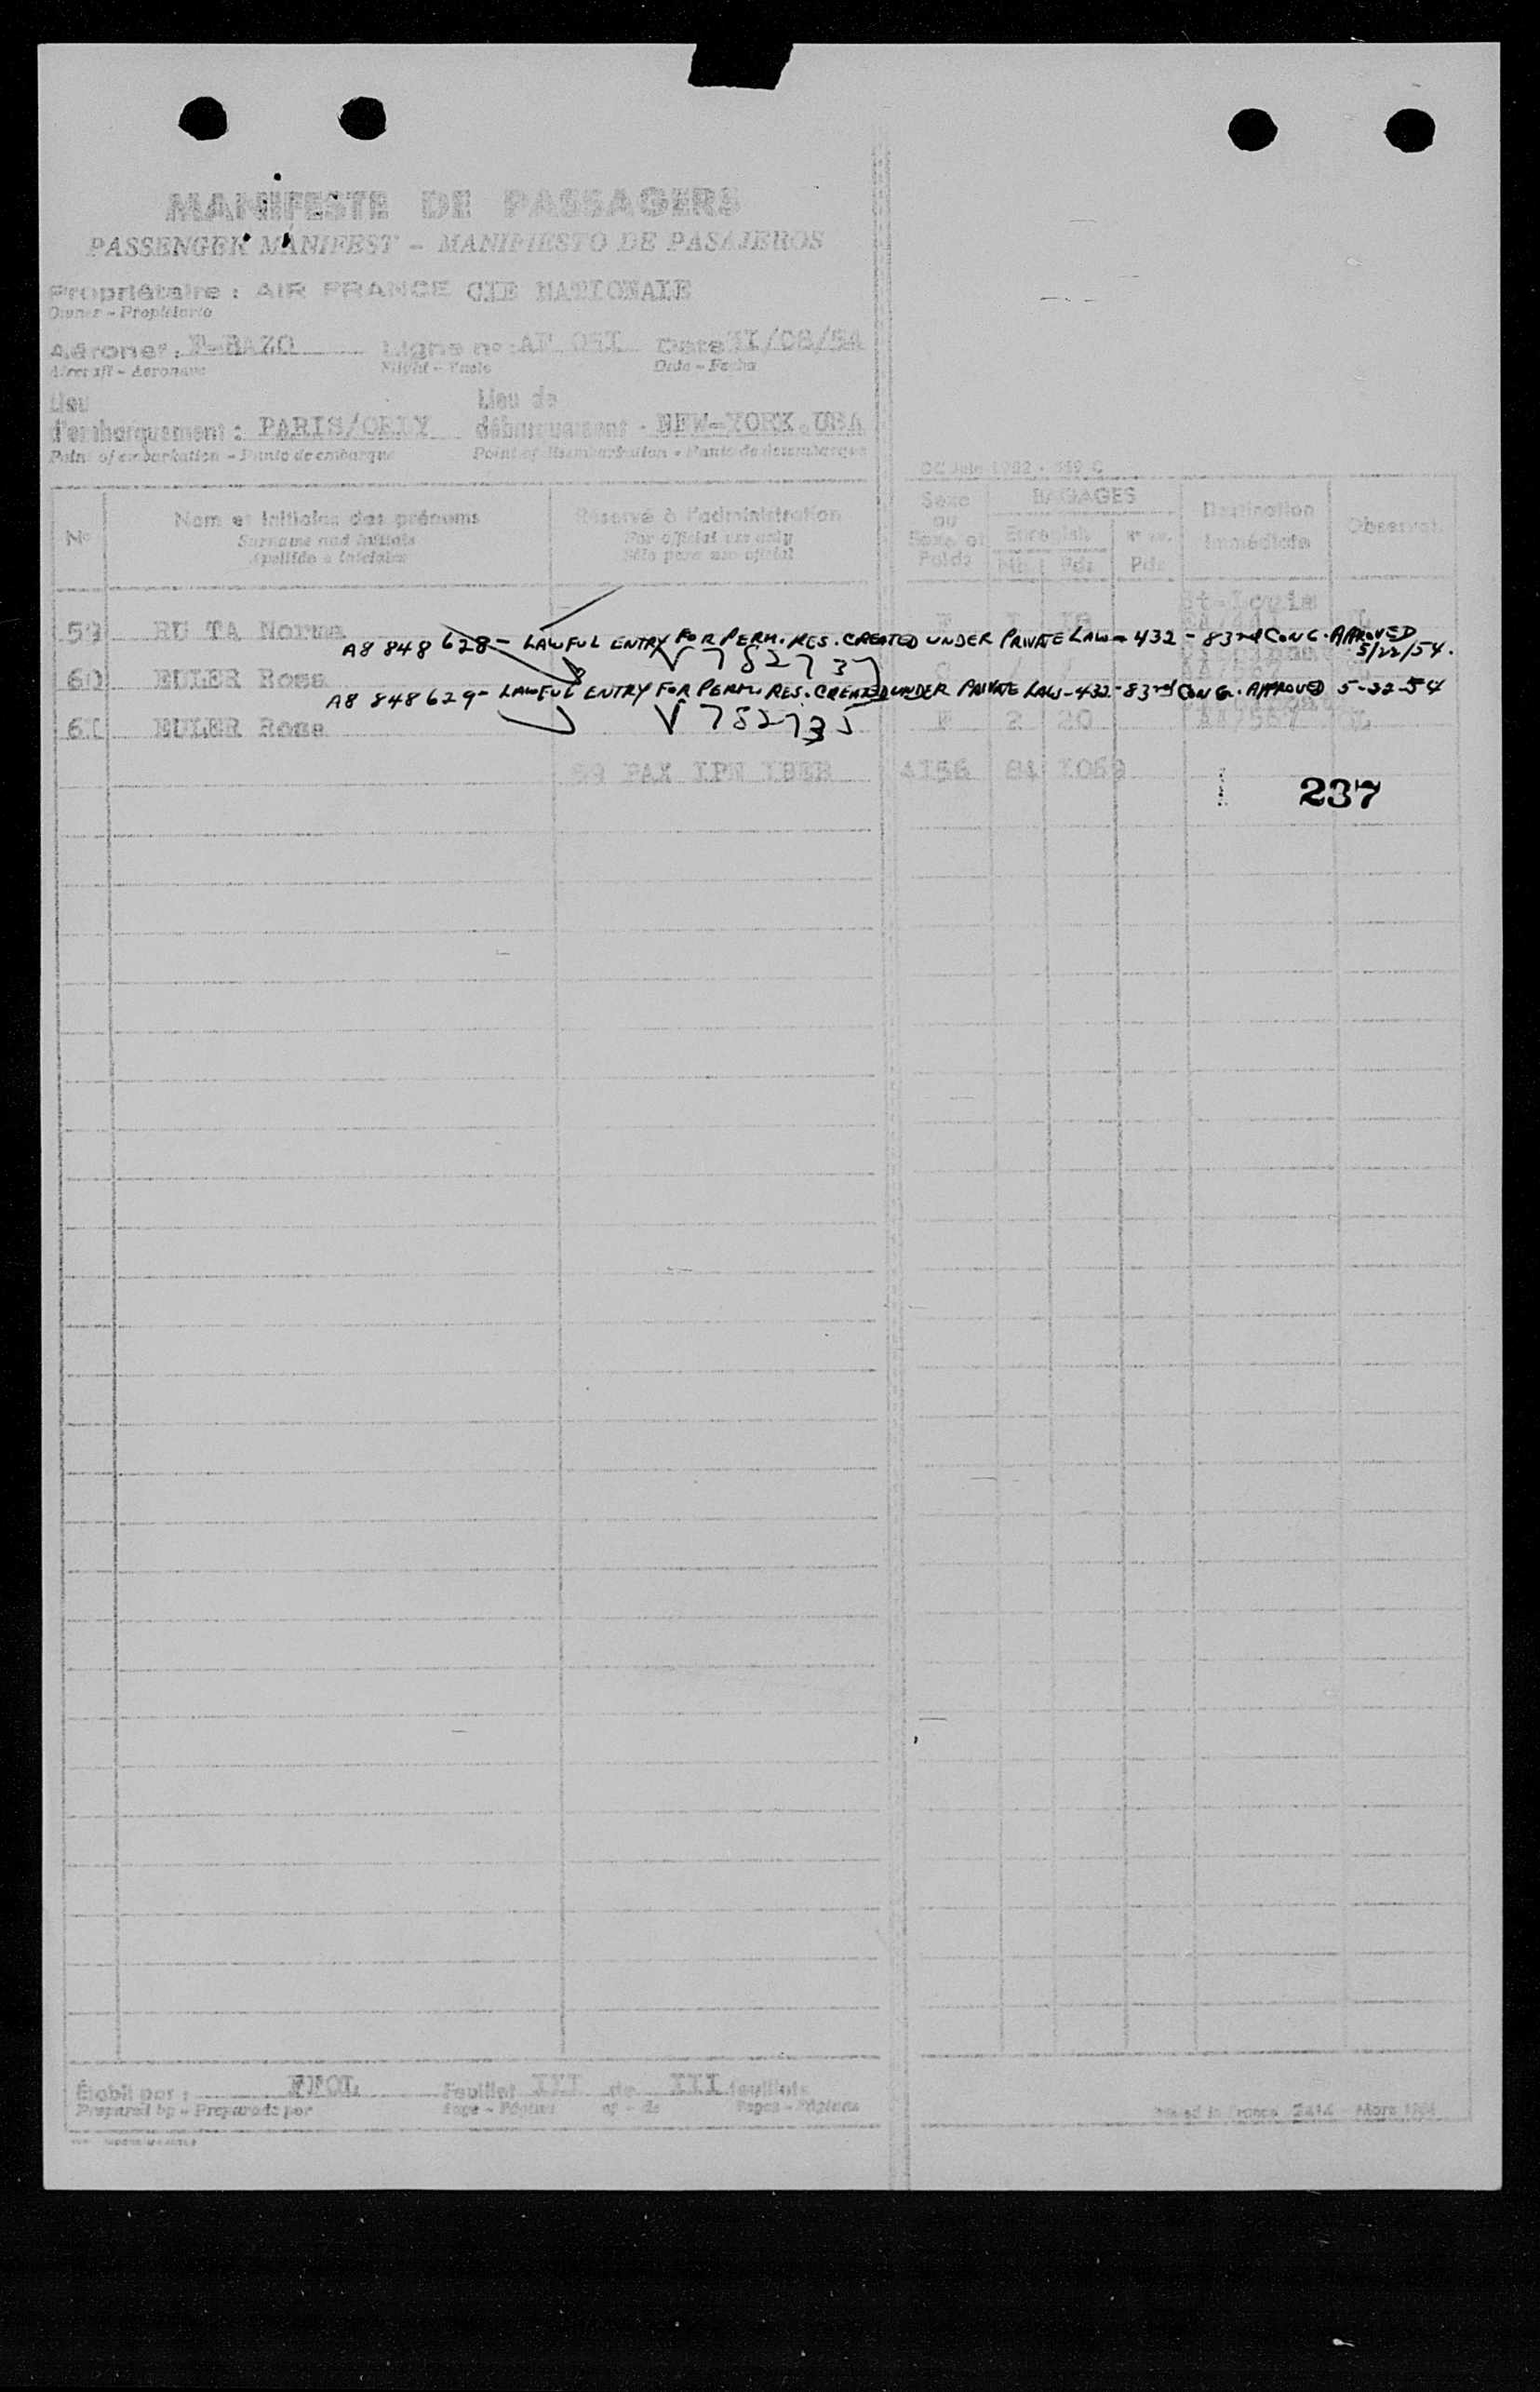 MANIFESTE DE PASSAGERS
PASSENGER MANIFEST - MANIFIESTO DE PASAJEROS
Propriétaire : AIR FRANCE CIE NATIONALE
Owner - Propietario
Aéronef : F-BAZO Ligne n° : AF 051 Date II/08/54
Aircraft - Aeronave Date - Fecha
Lieu Lieu de
d'embarquement : PARIS/ORLY débarquement : NEW-YORK.USA
Point of embarkation - Punto de embarque Point of disembarkation - Punto de desembarque
Sexe BAGAGES
N° Nom et initiales des prénoms Réservé à l'administration ou Enregist. Destination Observat.
Surname and initials For official use only Sexe et immédiate
Apellido e iniciales Sólo para uso oficial Poids Nb Pds Pds
St-Louis
59 RU TA Norma
A8 848 628 - LAWFUL ENTRY FOR PERM. RES. CREATED UNDER PRIVATE LAW - 432 - 83rd CONG. APPROVED
5/22/54.
V 782737
60 EULER Rosa
A8 848 629 - LAWFUL ENTRY FOR PERM. RES. CREATED UNDER PRIVATE LAW - 432 - 83rd CONG. APPROVED 5-22-54
V 782735
61 EULER Rose F 2 20 AA/567 L
4156 84 1069
237
Établi par : Feuillet III de III feuillets
Prepared by - Preparado por Page - Página of - de Pages - Páginas
Printed in France 2414 Mars